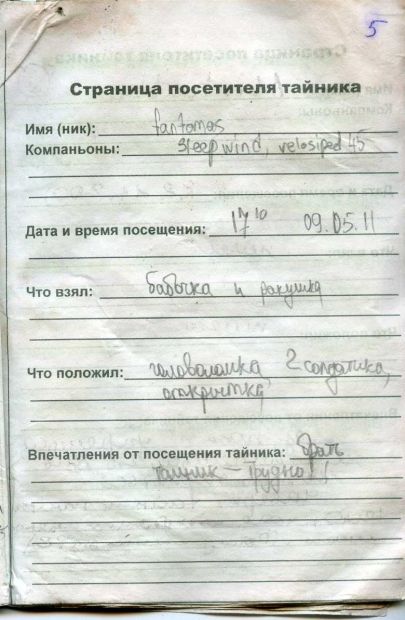 5
Страница посетителя тайника
Имя (ник): fantomas
Компаньоны: Steepwind, velosiped 45
Дата и время посещения: 17 10 09.05.11
Что взял: бабочка и ракушка
Что положил: головоломка, 2 солдатика,
открытка
Впечатления от посещения тайника: Брать
тайник - трудно!